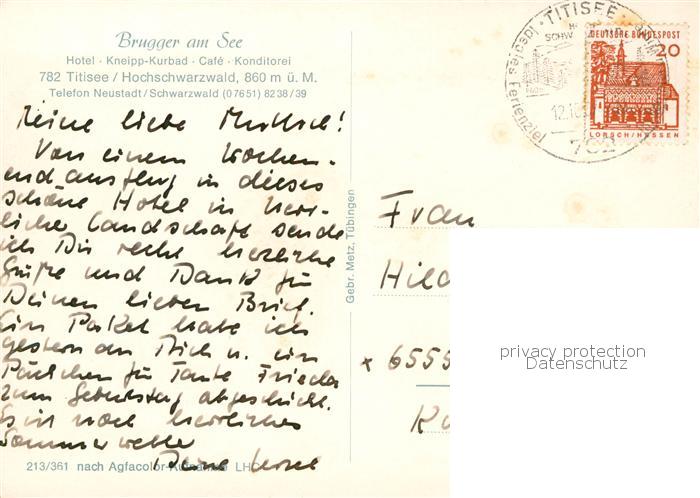 Brugger am See
Hotel · Kneipp-Kurbad · Café · Konditorei
782 Titisee / Hochschwarzwald, 860 m ü. M.
Telefon Neustadt/Schwarzwald (07651) 8238/39
Meine liebe
Von einem Wochen-
endausflug in dieses
schöne Hotel in herr-
licher Landschaft sende
ich Dir recht herzliche
Grüße und Dank für
Deinen lieben Brief.
Ein Paket habe ich
gestern an Dich u. ein
Päckchen für Tante Frieda
zum Geburtstag abgeschickt.
Es ist noch herrliches
Sommerwetter
Deine
213/361 nach Agfacolor-Aufnahmen LH
Gebr. Metz, Tübingen
TITISEE
ideales Ferienziel
12.10
782
DEUTSCHE BUNDESPOST
20
LORSCH/HESSEN
Frau
Hild
x 6555
privacy protection
Datenschutz